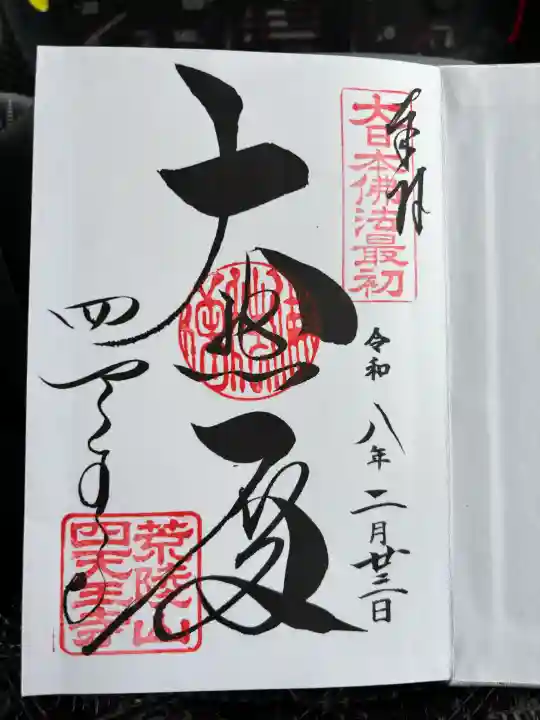 奉拝
大日本佛法最初
令和八年二月廿三日
大悲殿
四天王寺
荒陵山
四天王寺